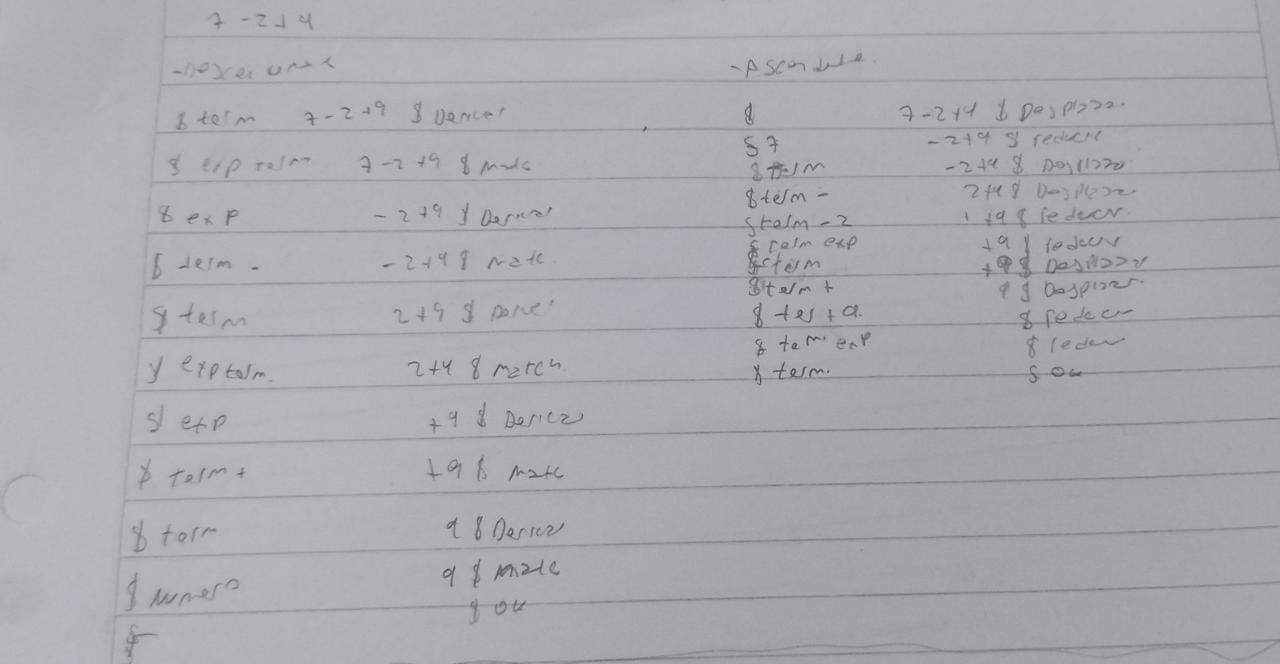 7 - 2 + 9
$ term 7 - 2 + 9 $ Deriva
$ exp term 7 - 2 + 9 $ Matc
$ exp - 2 + 9 $ Deriva
$ term - - 2 + 9 $ Matc
$ term 2 + 9 $ Deriva
$ exp term 2 + 9 $ Match
$ exp + 9 $ Deriva
$ term + + 9 $ Matc
$ term 9 $ Deriva
$ numero 9 $ Matc
$ $ OK
- Ascendente
$ 7 - 2 + 9 $ Desplaza
$ 7 - 2 + 9 $ reducir
$ term - 2 + 9 $ Desplaza
$ term - 2 + 9 $ Desplaza
$ term - 2 + 9 $ reducir
$ term exp + 9 $ reducir
$ term + 9 $ Desplaza
$ term + 9 $ Desplaza
$ ter + 9 $ reducir
$ term exp $ reducir
$ term. $ OK